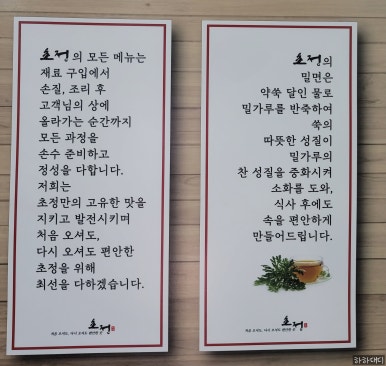 초정의 모든 메뉴는
재료 구입에서
손질, 조리 후
고객님의 상에
올라가는 순간까지
모든 과정을
손수 준비하고
정성을 다합니다.
저희는
초정만의 고유한 맛을
지키고 발전시키며
처음 오셔도,
다시 오셔도 편안한
초정을 위해
최선을 다하겠습니다.
초정
처음 오셔도, 다시 오셔도 편안한 곳
초정의
밀면은
약쑥 달인 물로
밀가루를 반죽하여
쑥의
따뜻한 성질이
밀가루의
찬 성질을 중화시켜
소화를 도와,
식사 후에도
속을 편안하게
만들어드립니다.
초정
처음 오셔도, 다시 오셔도 편안한 곳
하하대디